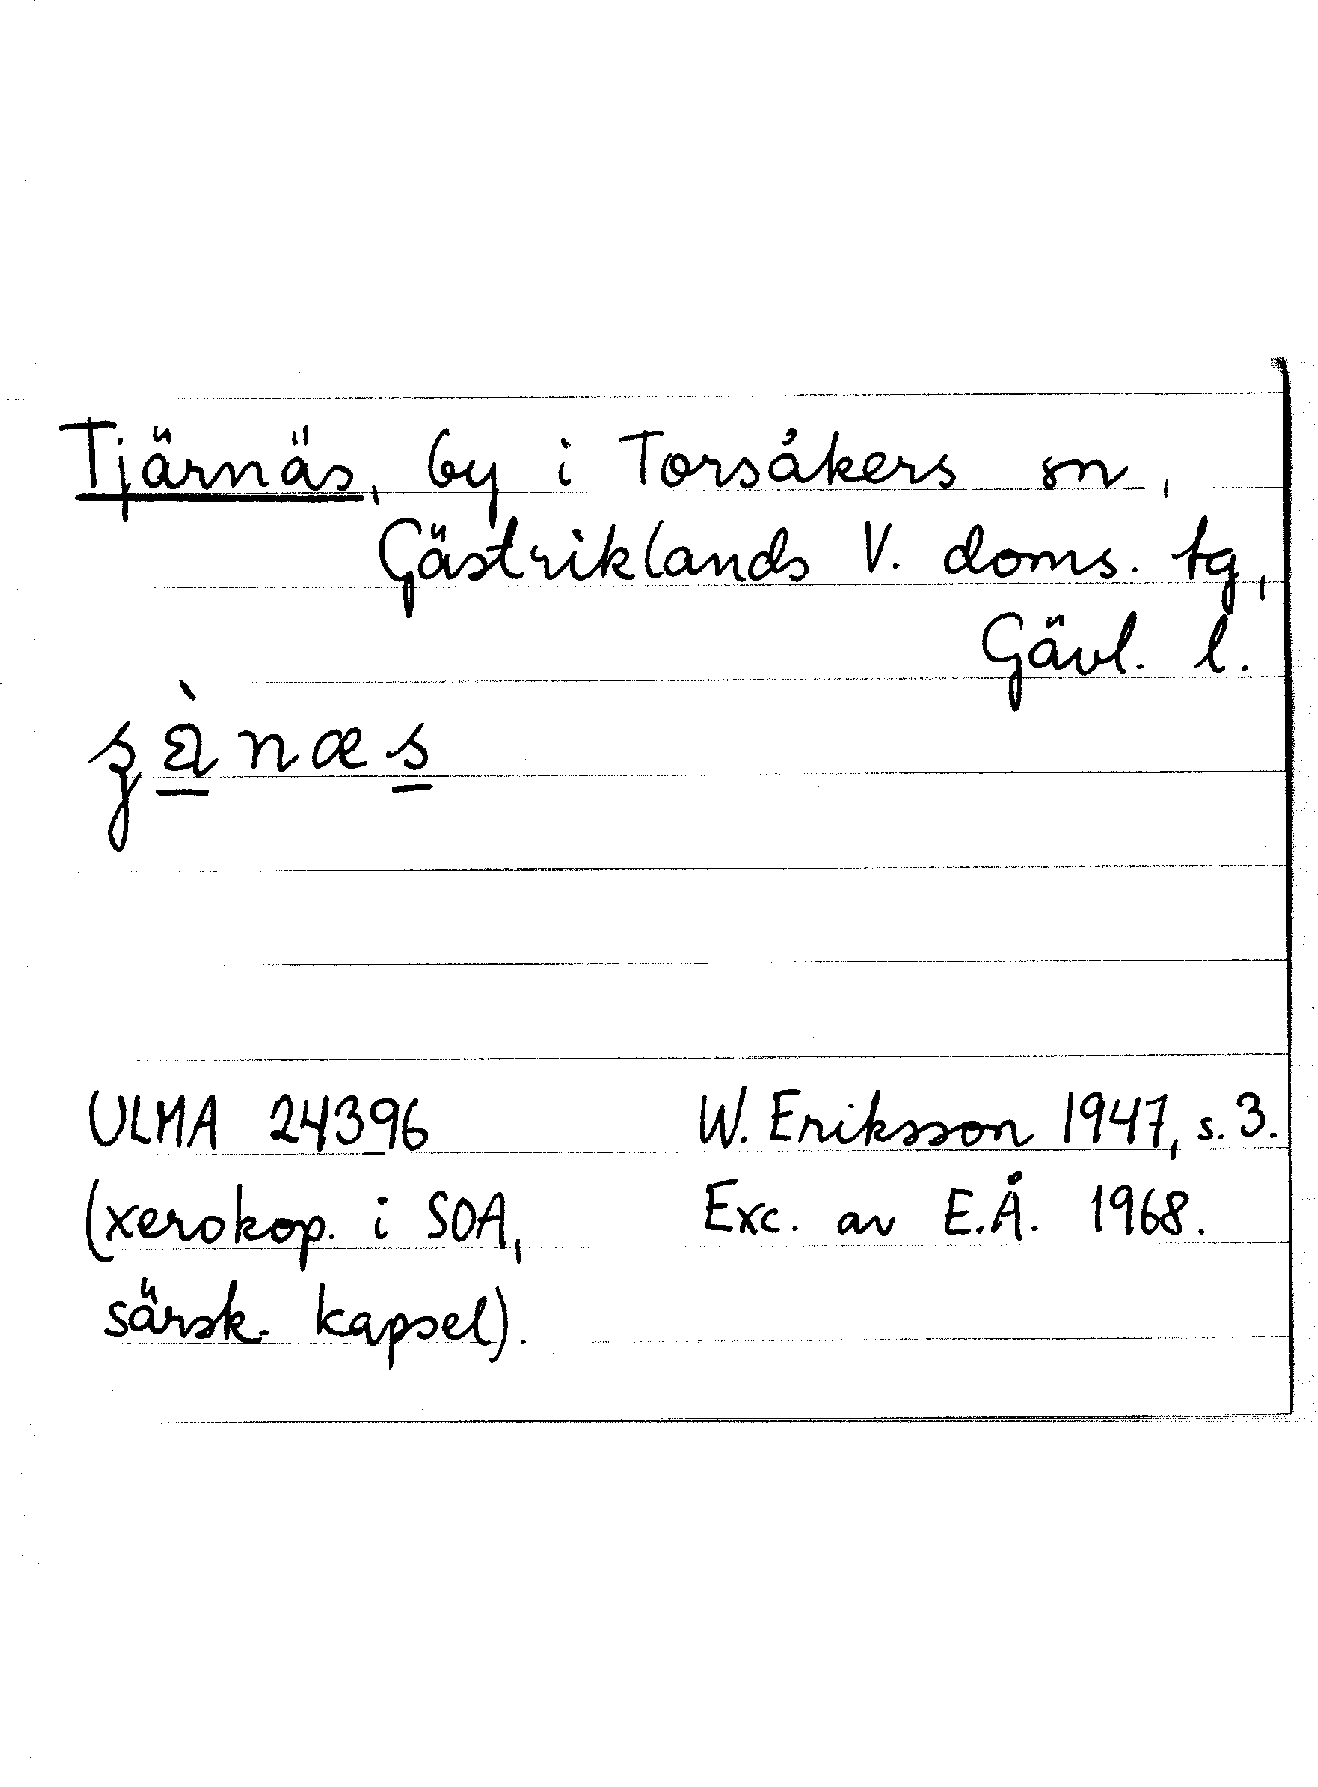 Tjärnäs, by i Torsåkers sn,
Gästriklands V. doms. tg,
Gävl. l.
ULMA 24396 W. Eriksson 1947, s. 3.
(xerokop. i SOA, Exc. av E.Å. 1968.
särsk. kapsel).